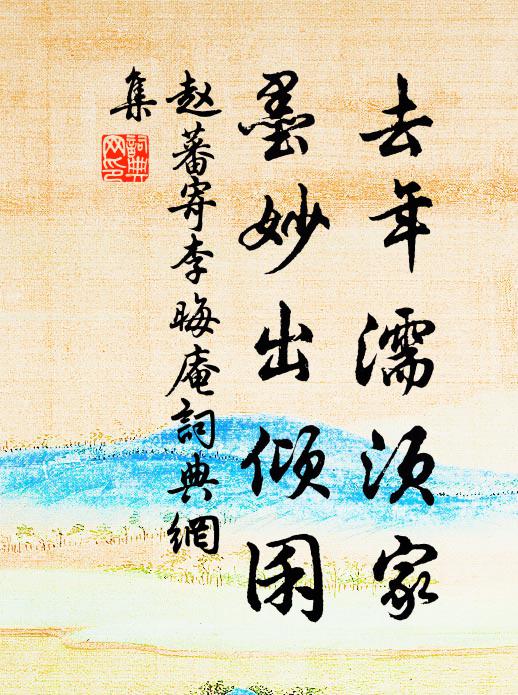 去年濡须家
墨妙出倾囷
赵蕃寄李晦庵詞典網
集
詞典网印